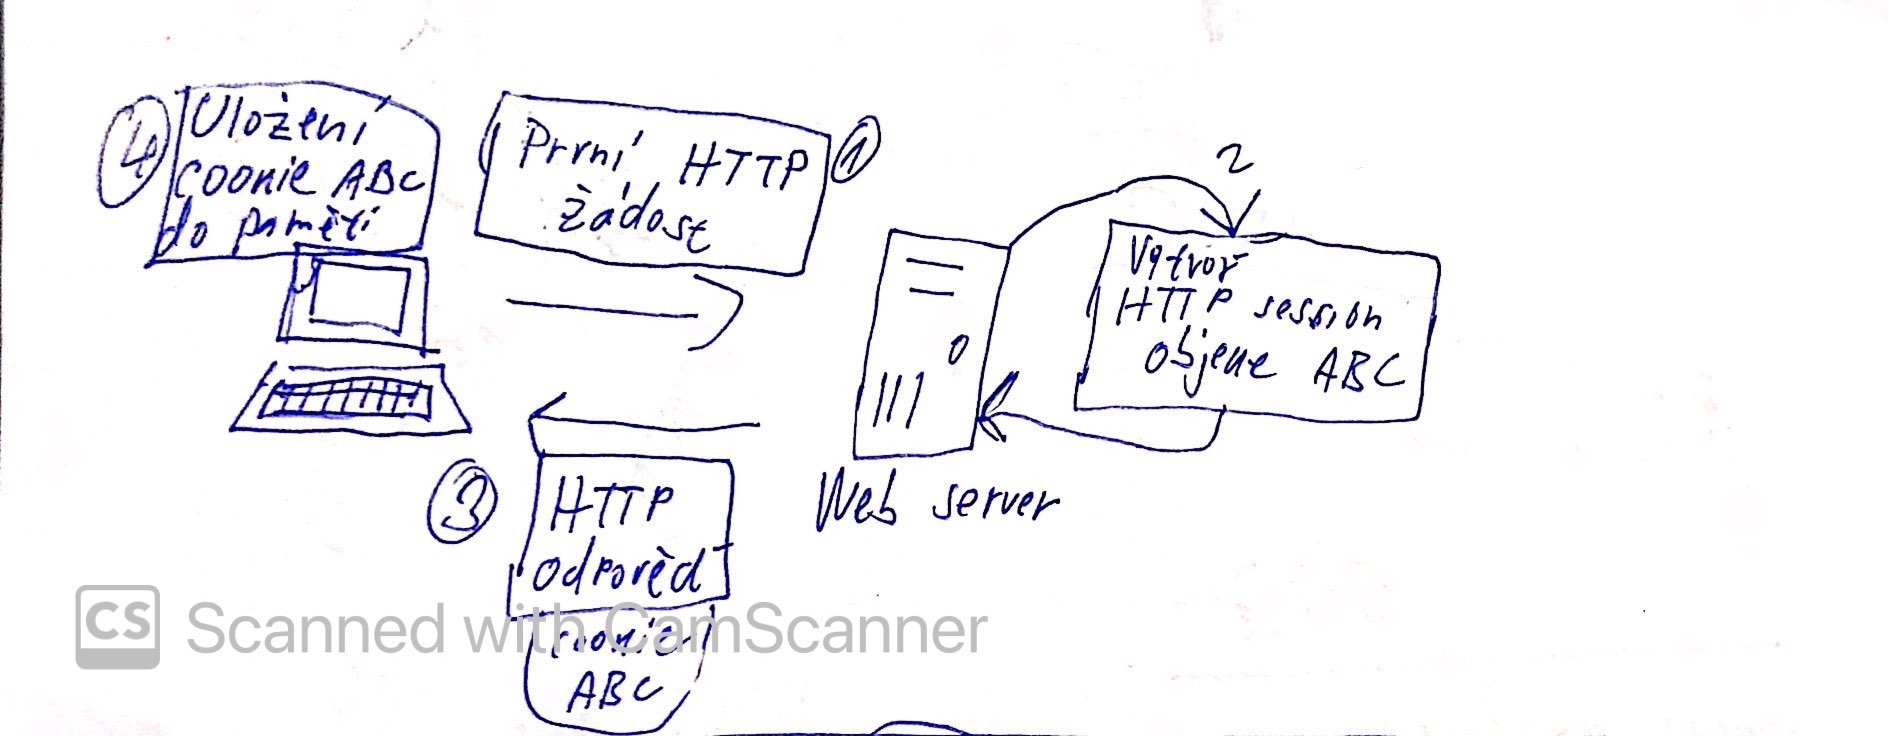 4
Uložení
coonie ABC
do paměti
První HTTP
žádost
1
2
Vytvoř
HTTP session
objene ABC
3
HTTP
odpověd
coonie
ABC
Web server
CS Scanned with CamScanner